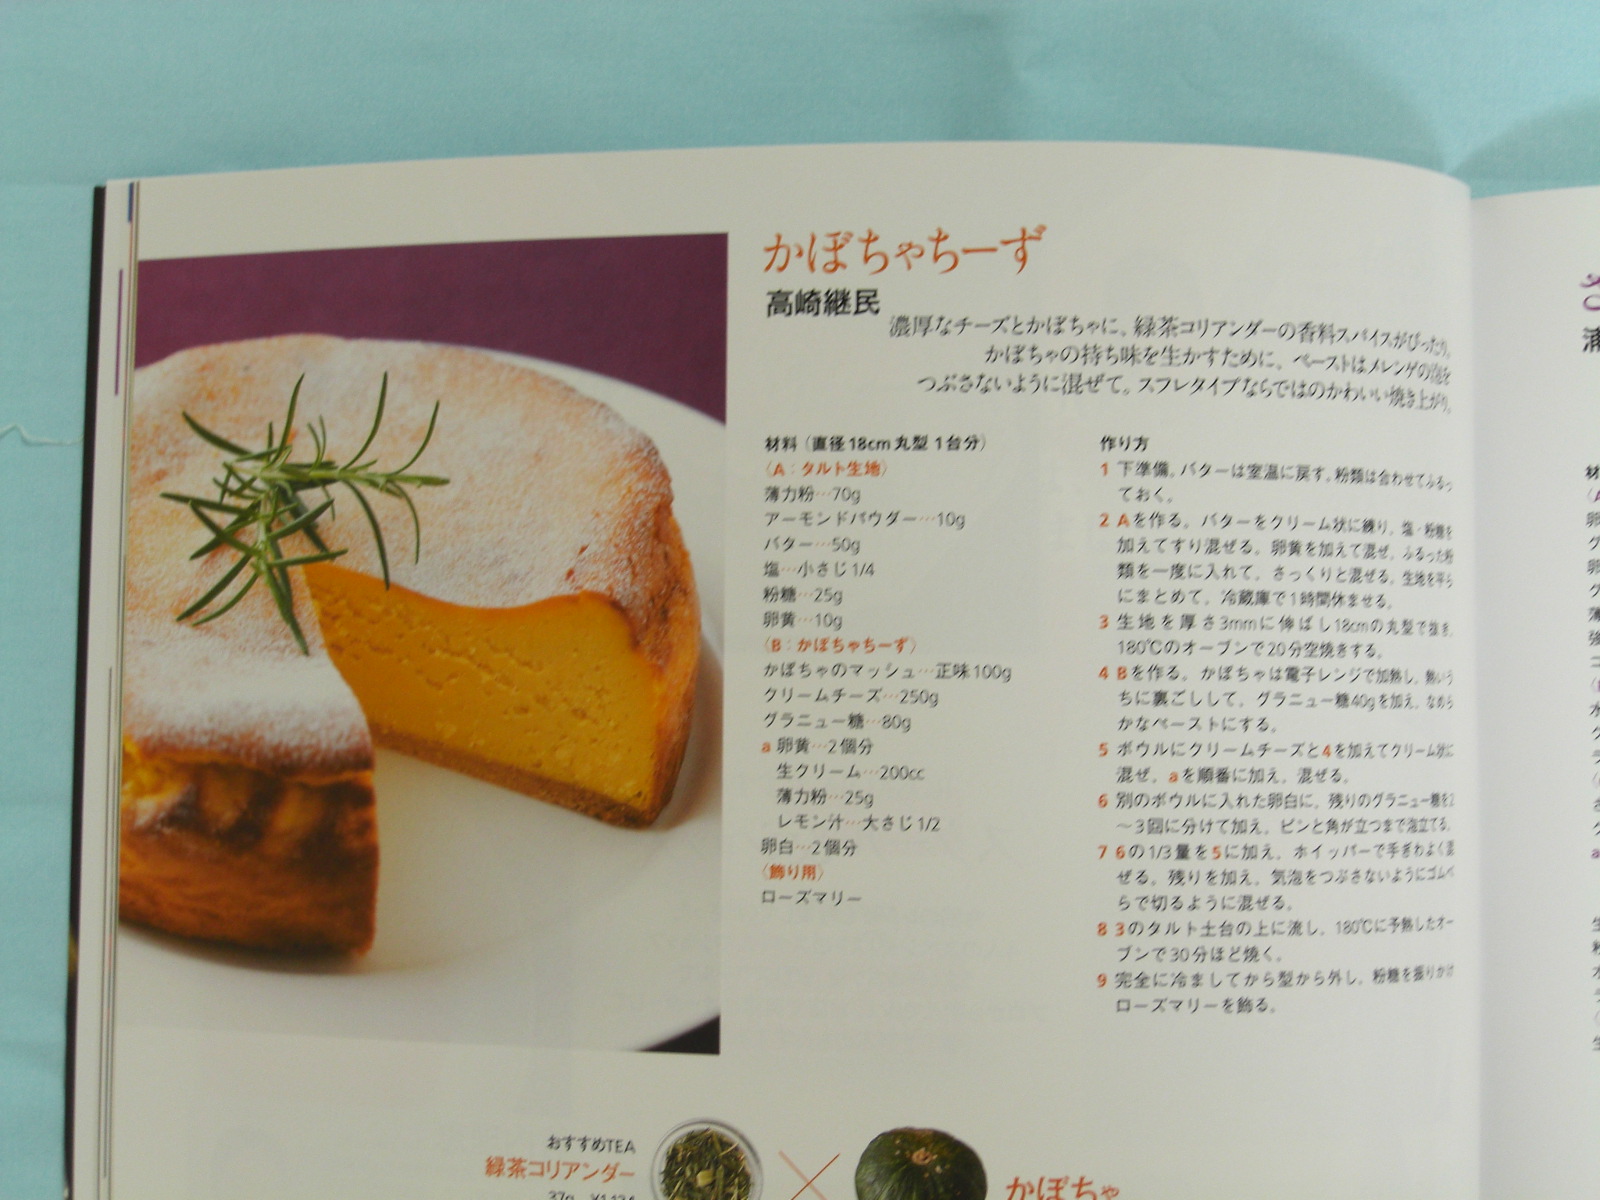 かぼちゃちーず
高崎継民
濃厚なチーズとかぼちゃに、緑茶コリアンダーの香料スパイスがぴったり。
かぼちゃの持ち味を生かすために、ペーストはメレンゲの泡を
つぶさないように混ぜて。スフレタイプならではのかわいい焼き上がり。
材料（直径18cm丸型 1台分）
〈A：タルト生地〉
薄力粉…70g
アーモンドパウダー…10g
バター…50g
塩…小さじ1/4
粉糖…25g
卵黄…10g
〈B：かぼちゃちーず〉
かぼちゃのマッシュ…正味100g
クリームチーズ…250g
グラニュー糖…80g
a 卵黄…2個分
生クリーム…200cc
薄力粉…25g
レモン汁…大さじ1/2
卵白…2個分
〈飾り用〉
ローズマリー
作り方
1 下準備。バターは室温に戻す。粉類は合わせてふるっ
ておく。
2 Aを作る。バターをクリーム状に練り、塩・粉糖を
加えてすり混ぜる。卵黄を加えて混ぜ、ふるった粉
類を一度に入れて、さっくりと混ぜる。生地を平ら
にまとめて、冷蔵庫で1時間休ませる。
3 生地を厚さ3mmに伸ばし18cmの丸型で抜き、
180℃のオーブンで20分空焼きする。
4 Bを作る。かぼちゃは電子レンジで加熱し、熱いう
ちに裏ごしして、グラニュー糖40gを加え、なめら
かなペーストにする。
5 ボウルにクリームチーズと4を加えてクリーム状に
混ぜ、aを順番に加え、混ぜる。
6 別のボウルに入れた卵白に、残りのグラニュー糖を2
〜3回に分けて加え、ピンと角が立つまで泡立てる。
7 6の1/3量を5に加え、ホイッパーで手ぎわよく混
ぜる。残りを加え、気泡をつぶさないようにゴムベ
らで切るように混ぜる。
8 3のタルト土台の上に流し、180℃に予熱したオー
ブンで30分ほど焼く。
9 完全に冷ましてから型から外し、粉糖を振りかけ
ローズマリーを飾る。
おすすめTEA
緑茶コリアンダー
かぼちゃ